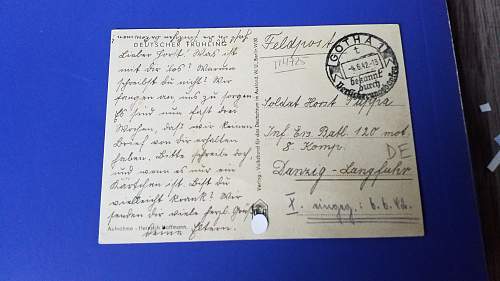 DEUTSCHER FRÜHLING
Lieber Horst! Was ist
mit dir los? Warum
schreibst du nicht? Wir
fangen an uns zu sorgen
Es sind nun fast drei
Wochen, daß wir keinen
Brief von dir erhalten
haben. Bitte schreibe doch
und wenn es nur ein
Kärtchen ist. Bist du
vielleicht krank? Wir
senden dir viele herzl. Grüße
Deine Eltern.
Aufnahme - Heinrich Hoffmann,
Verlag: Volksbund für das Deutschtum im Ausland, W. U., Berlin W30
Feldpost
GOTHA
-4.6.42.-13
bekannt
durch
Soldat Horst
Inf Ers. Batl. 120 mot.
8 Komp.
DE
Danzig-Langfuhr
X. eingeg: 6.6.42.